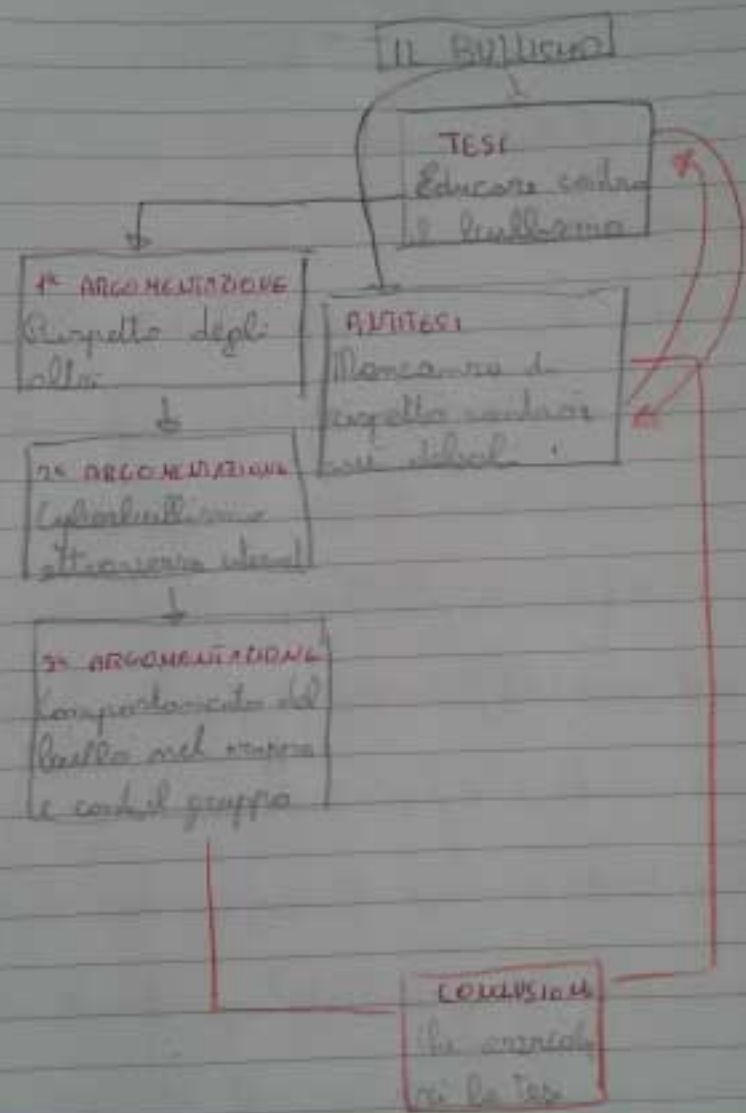 IL BULLISMO
TESI
Educare contro
il bullismo
1ª ARGOMENTAZIONE
Rispetto degli
altri
ANTITESI
Mancanza di
rispetto
2ª ARGOMENTAZIONE
Cyberbullismo
attraverso
3ª ARGOMENTAZIONE
Comportamento del
bullo nel
e con il gruppo
CONCLUSIONE
la tesi